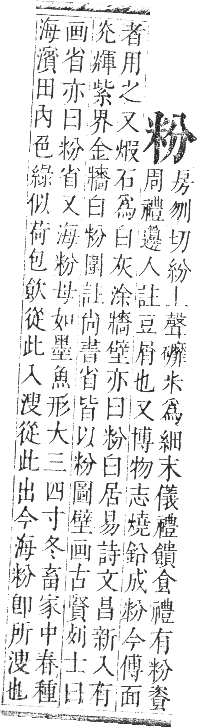 粉 房刎切紛上聲礳米爲細末儀禮饋食禮有粉餈
周禮籩人註豆屑也又博物志燒鉛成粉今傅面
者用之又煆石爲白灰涂牆壁亦曰粉白居易詩文昌新入有
光輝紫界金牆白粉圍註尚書省皆以粉圖壁画古賢列士曰
画省亦曰粉省又海粉母如墨魚形大三四寸冬畜家中春種
海濱田內色綠似荷包飲從此入溲從此出今海粉卽所溲也